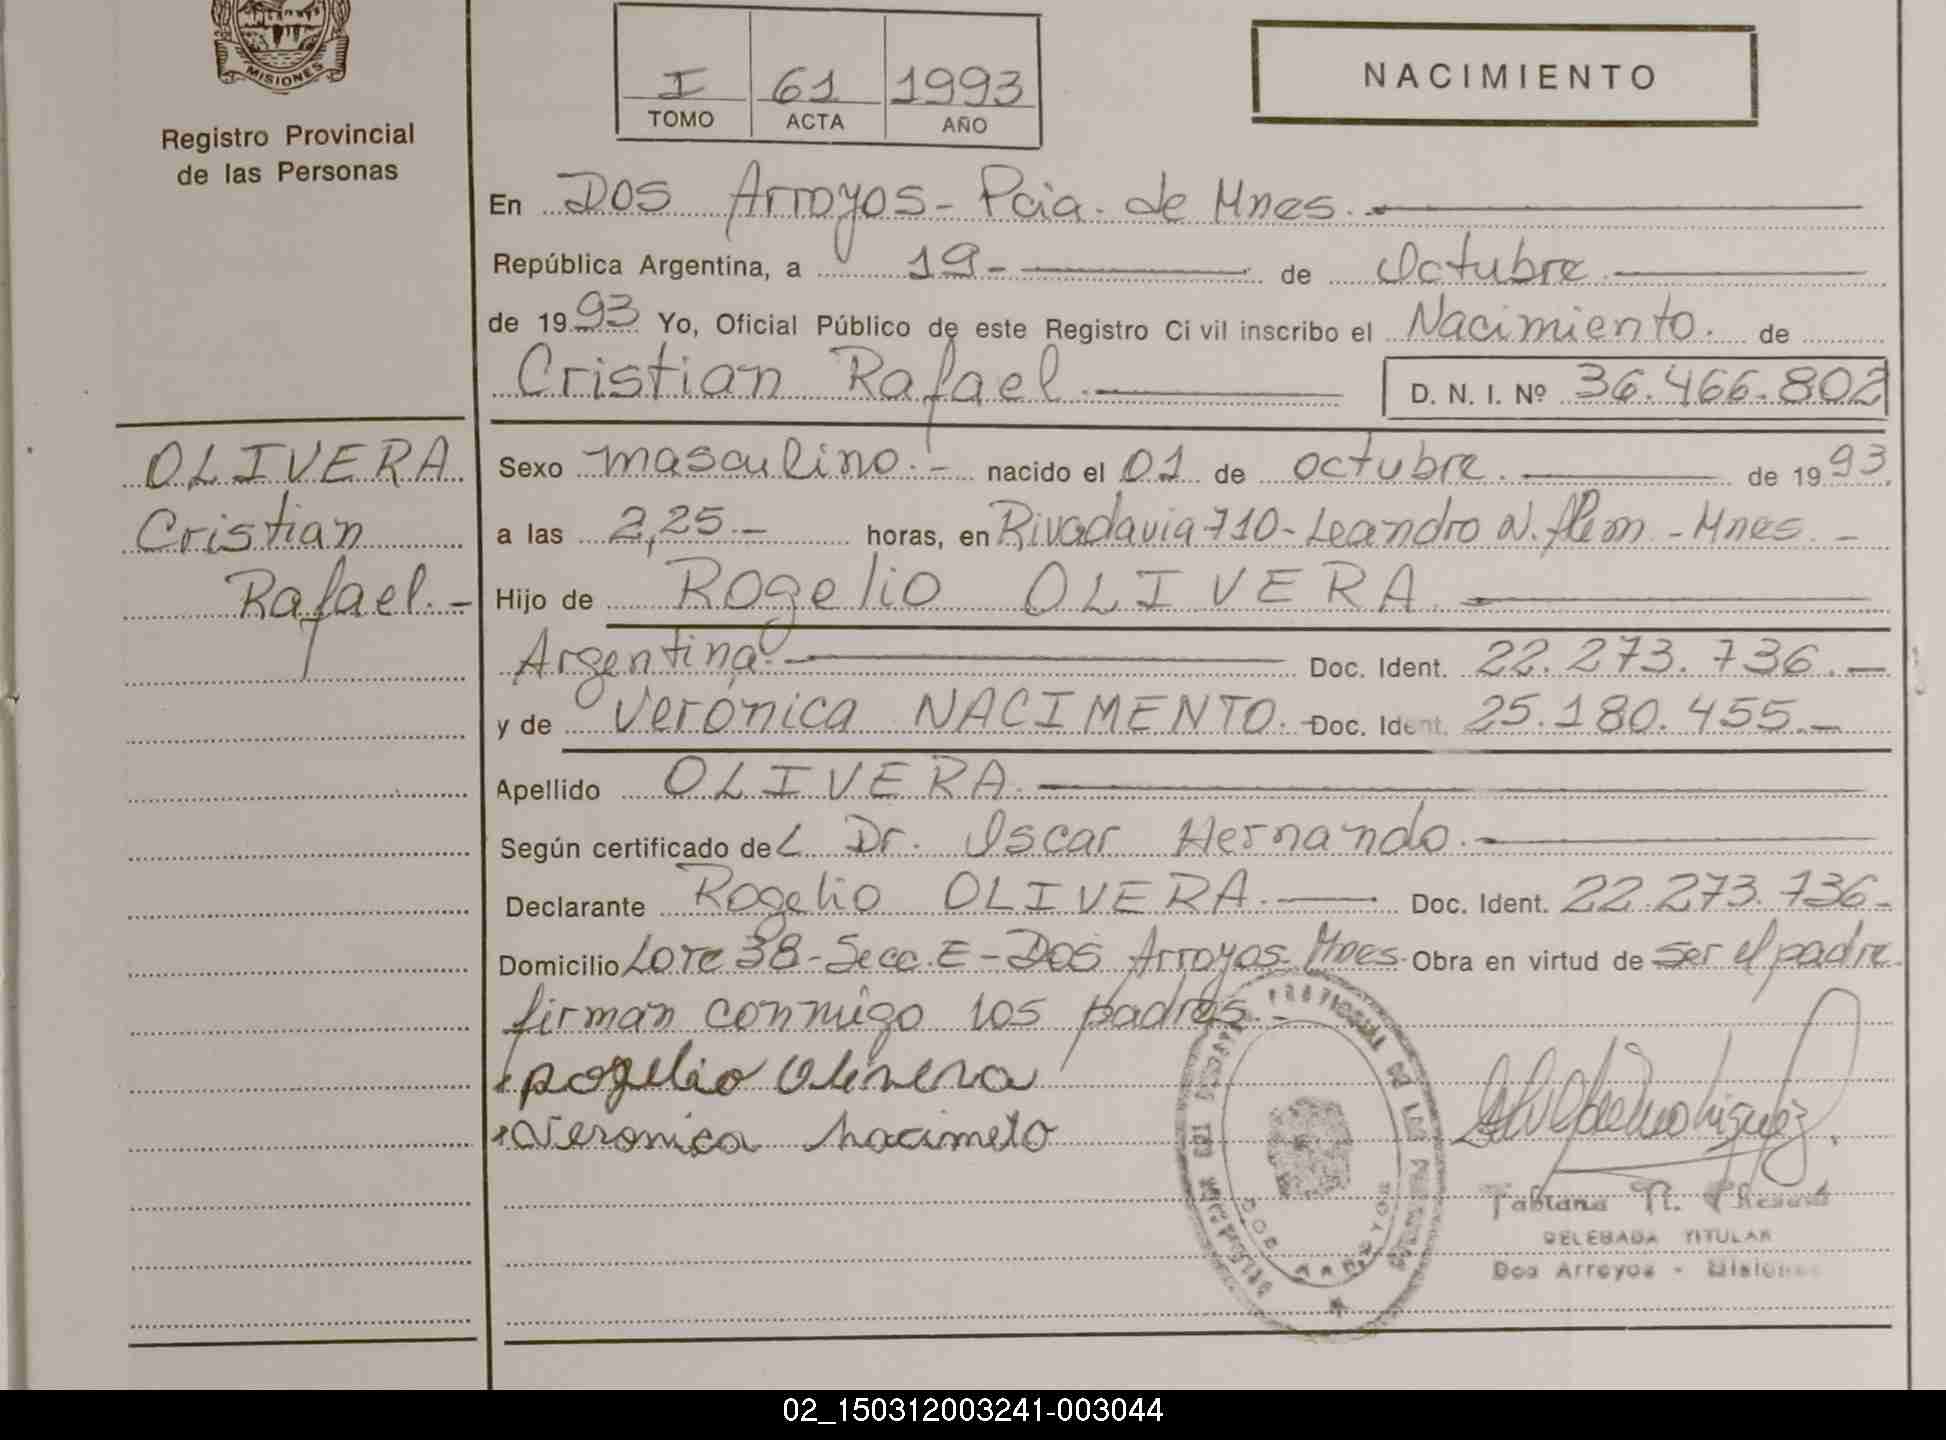 MISIONES
Registro Provincial
de las Personas
I 61 1993
TOMO ACTA AÑO
NACIMIENTO
En Dos Arroyos - Pcia. de Mnes.
República Argentina, a 19 - de Octubre
de 1993 Yo, Oficial Público de este Registro Civil inscribo el Nacimiento. de
Cristian Rafael. D. N. I. Nº 36.466.802
OLIVERA
Cristian
Rafael. -
Sexo masculino. - nacido el 01 de octubre. de 1993
a las 2,25 - horas, en Rivadavia 710 - Leandro N. Alem - Mnes. -
Hijo de Rogelio OLIVERA
Argentina. Doc. Ident. 22.273.736. -
y de Verónica NACIMENTO. - Doc. Ident. 25.180.455. -
Apellido OLIVERA.
Según certificado del Dr. Oscar Hernando.
Declarante Rogelio OLIVERA. Doc. Ident. 22.273.736 -
Domicilio Lote 38 - Secc. E - Dos Arroyos - Mnes. Obra en virtud de ser el padre
firman conmigo los padres -
Rogelio Olivera
Veronica nacimeto
PROVINCIAL DE LAS
DOS ARROYOS
Fabiana
DELEGADA TITULAR
Dos Arroyos - Misiones
02_150312003241-003044